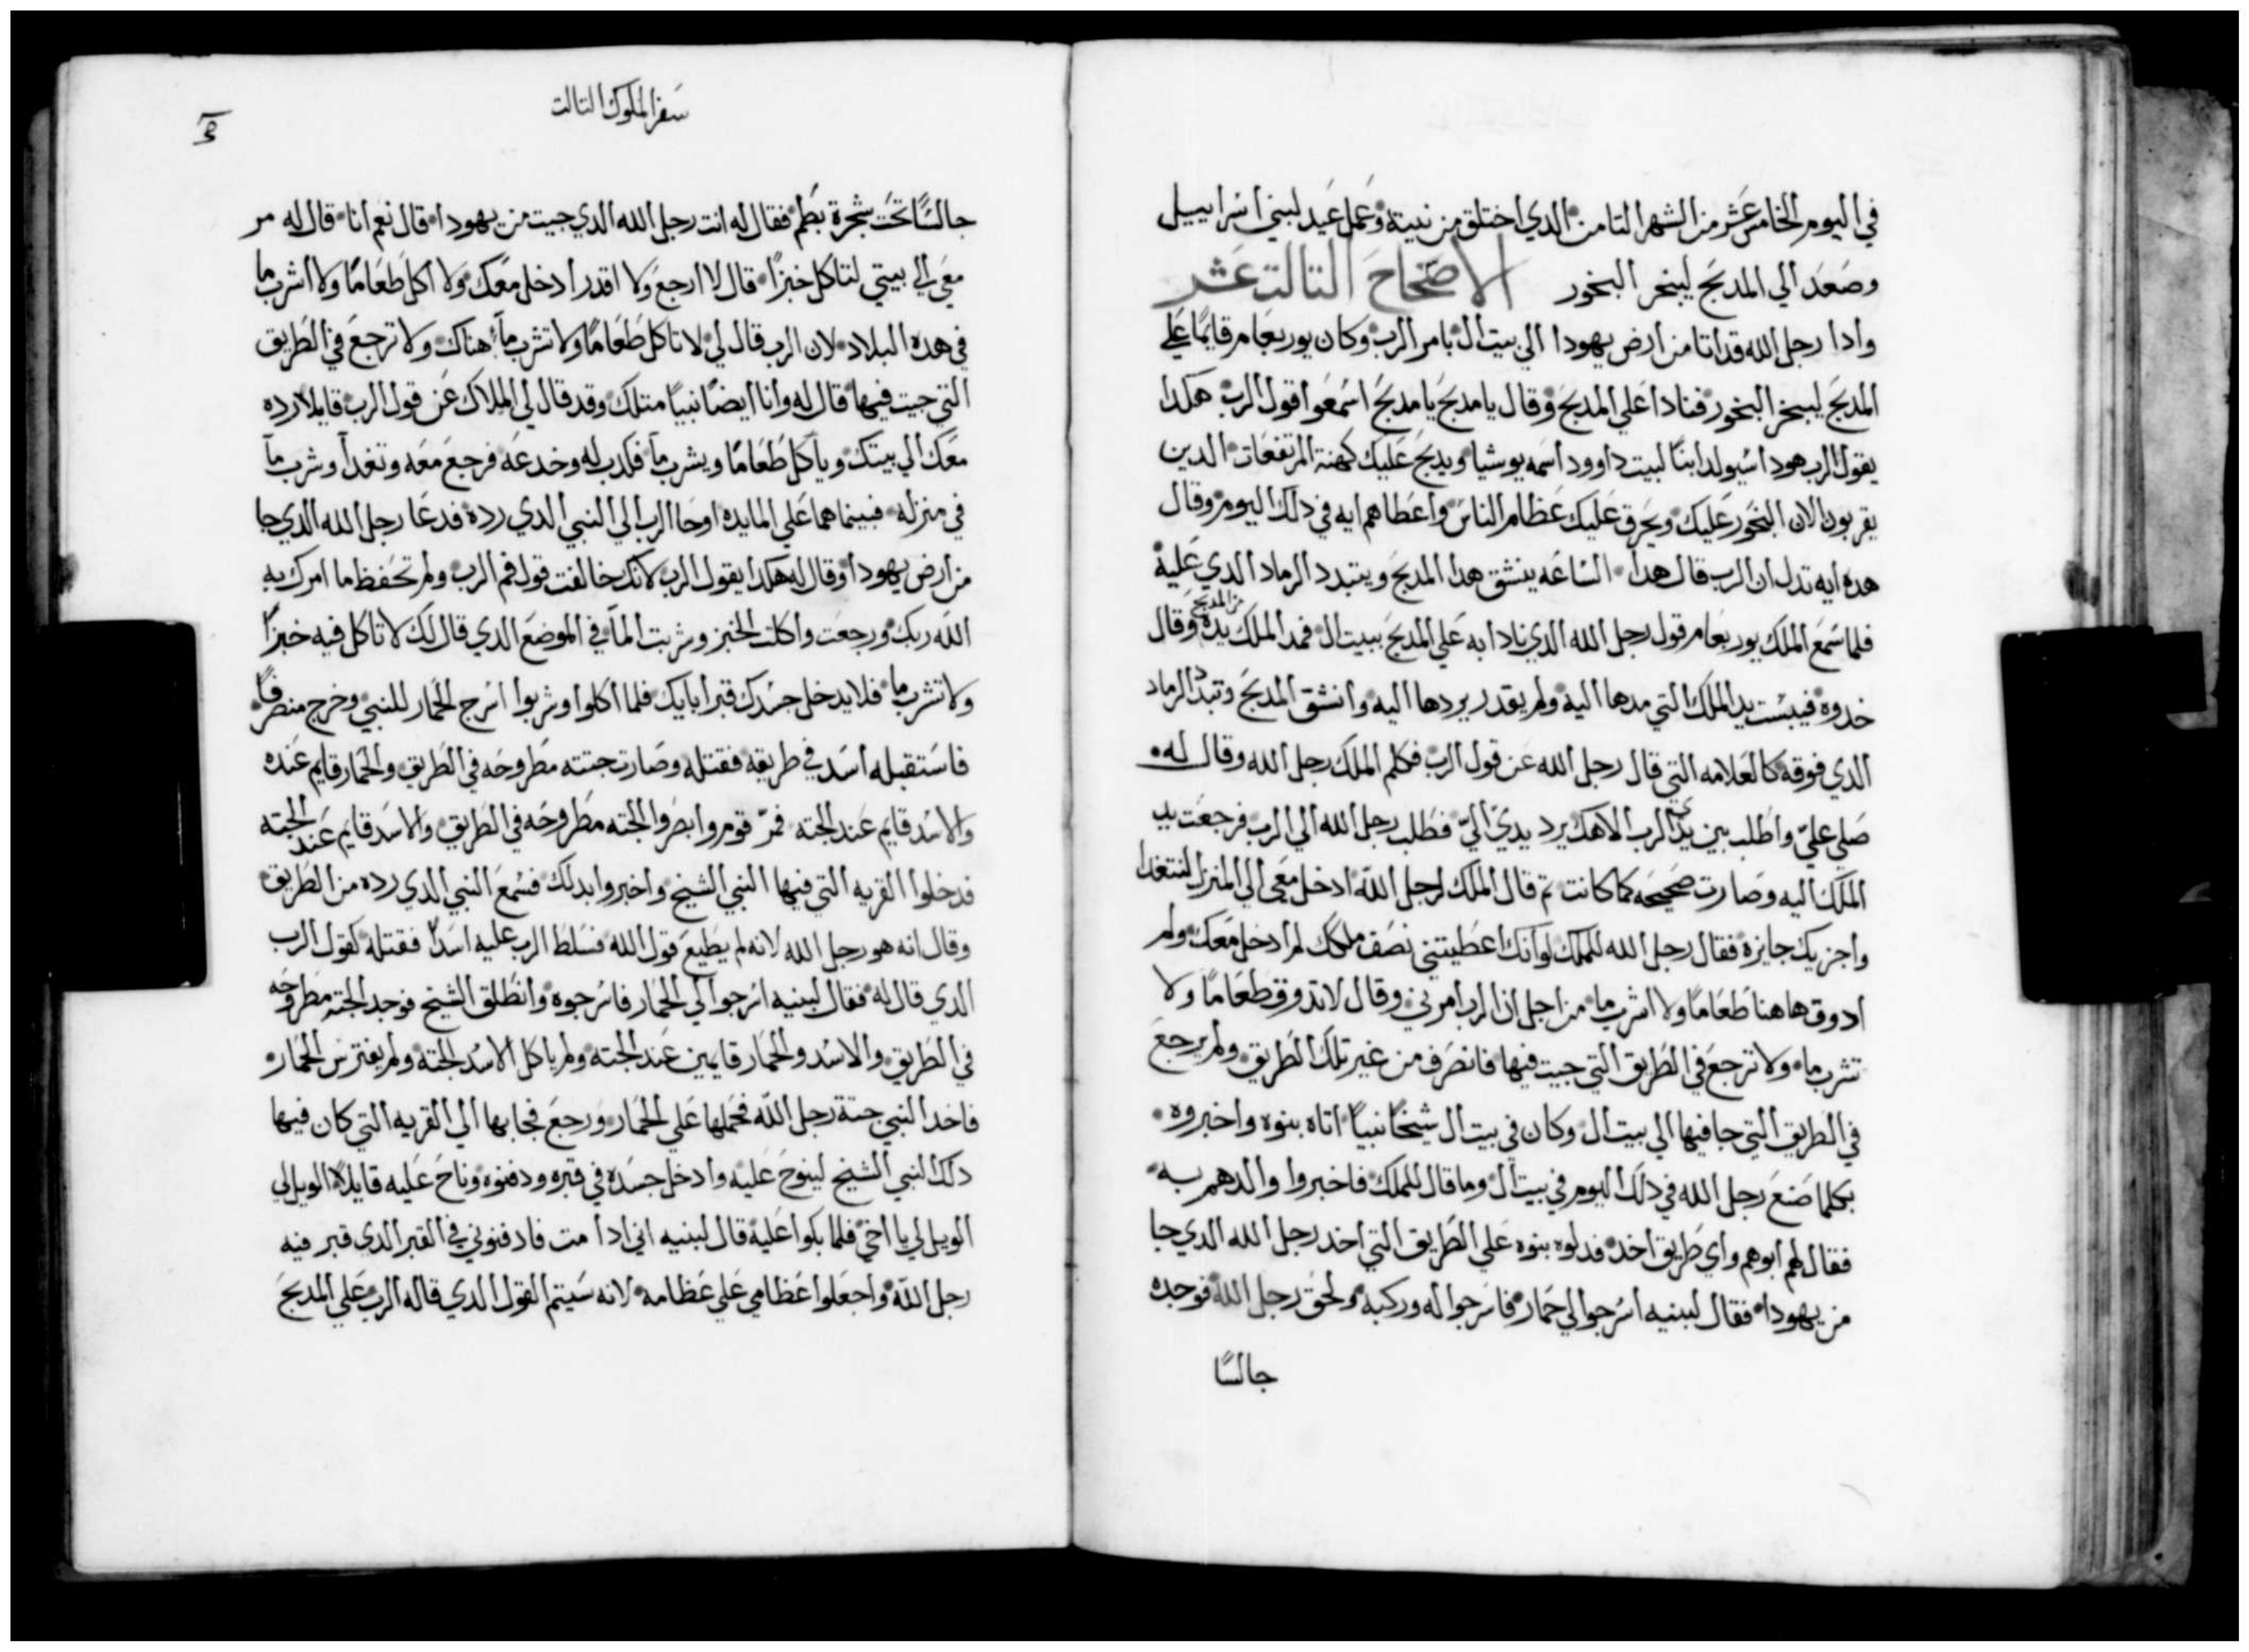 في اليوم الخامس عشر من الشهر التامن الدي اختلق من نيته وعمل عيد لبني اسراييل
وصعد الي المدبح ليبخر البخور الاصحاح التالت عشر
وادا رجل الله قد اتا من ارض يهودا الي بيت ال بامر الرب وكان يوربعام قايمًا علي
المدبح ليبخر البخور فنادا علي المدبح وقال يا مدبح يا مدبح اسمعوا قول الرب هكدا
يقول الرب هودا سيولد ابنًا لبيت داوود اسمه يوشيا ويدبح عليك كهنة المرتفعات الدين
يقربون الان البخور عليك ويحرق عليك عظام الناس واعطاهم ايه في دلك اليوم وقال
هده ايه تدل ان الرب قال هدا الساعه ينشق هدا المدبح ويتبدد الرماد الدي عليه
فلما سمع الملك يوربعام قول رجل الله الدي نادا به علي المدبح ببيت ال فمد الملك يده من المدبح وقال
خدوه فيبست يد الملك التي مدها اليه ولم يقدر يردها اليه وانشق المدبح وتبدد الرماد
الدي فوقه كالعلامه التي قال رجل الله عن قول الرب فكلم الملك رجل الله وقال له
صلي عليّ واطلب بين يدي الرب الاهك يرد يدي اليّ فطلب رجل الله الي الرب فرجعت يد
الملك اليه وصارت صحيحه كما كانت تم قال الملك لرجل الله ادخل معي الي المنزل لنتغدا
واجزيك جايزه فقال رجل الله للملك لو انك اعطيتني نصف ملكك لم ادخل معك ولم
ادوق هاهنا طعامًا ولا اشرب ما من اجل ان الرب امرني وقال لا تدوق طعامًا ولا
تشرب ما ولا ترجع في الطريق التي جيت فيها فانصرف من غير تلك الطريق ولم يرجع
في الطريق التي جا فيها الي بيت ال وكان في بيت ال شيخًا نبيًا اتاه بنوه واخبروه
بكلما صنع رجل الله في دلك اليوم في بيت ال وما قال للملك فاخبروا والدهم به
فقال لهم ابوهم واي طريق اخد فدلوه بنوه علي الطريق التي اخد رجل الله الدي جا
من يهودا فقال لبنيه اسرجوا لي حمار فاسرجوا له وركبه ولحق رجل الله فوجده
جالسًا
سفر الملوك التالت
جالسًا تحت شجرة بطم فقال له انت رجل الله الدي جيت من يهودا قال نعم انا قال له مر
معي الي بيتي لتاكل خبزًا قال لا ارجع ولا اقدر ادخل معك ولا اكل طعامًا ولا اشرب ما
في هده البلاد لان الرب قال لي لا تاكل طعامًا ولا تشرب مآ هناك ولا ترجع في الطريق
التي جيت فيها قال له وانا ايضًا نبيًا متلك وقد قال لي الملاك عن قول الرب قايلا رده
معك الي بيتك وياكل طعامًا ويشرب مآ فكدب له وخدعه فرجع معه وتغدا وشرب مآ
في منزله فبينما هما علي المايده اوحا الرب الي النبي الدي رده فدعا رجل الله الدي جا
من ارض يهودا وقال له هكدا يقول الرب لانك خالفت قول فم الرب ولم تحفظ ما امرك به
الله ربك ورجعت واكلت الخبز وشربت المآ في الموضع الدي قال لك لا تاكل فيه خبزًا
ولا تشرب ما فلا يدخل جسدك قبر ابايك فلما اكلوا وشربوا اسرج الحمار للنبي وخرج منصرفًا
فاستقبله اسد في طريقه فقتله وصارت جتته مطروحه في الطريق والحمار قايم عنده
والاسد قايم عند الجته فمرّ قوم وابصروا الجته مطروحه في الطريق والاسد قايم عند الجته
فدخلوا القريه التي فيها النبي الشيخ واخبروا بدلك فسمع النبي الدي رده من الطريق
وقال انه هو رجل الله لانه لم يطيع قول الله فسلط الرب عليه اسدًا فقتله كقول الرب
الدي قال له فقال لبنيه اسرجوا لي الحمار فاسرجوه وانطلق الشيخ فوجد الجته مطروحه
في الطريق والاسد والحمار قايمين عند الجته ولم ياكل الاسد الجته ولم يفترس الحمار
فاخد النبي جتة رجل الله فحملها علي الحمار ورجع فجا بها الي القريه التي كان فيها
دلك النبي الشيخ لينوح عليه وادخل جسده في قبره ودفنوه وناح عليه قايلًا الويل لي
الويل لي يا اخي فلما بكوا عليه قال لبنيه اني ادا مت فادفنوني في القبر الدي قبر فيه
رجل الله واجعلوا عظامي علي عظامه لانه سيتم القول الدي قاله الرب علي المدبح